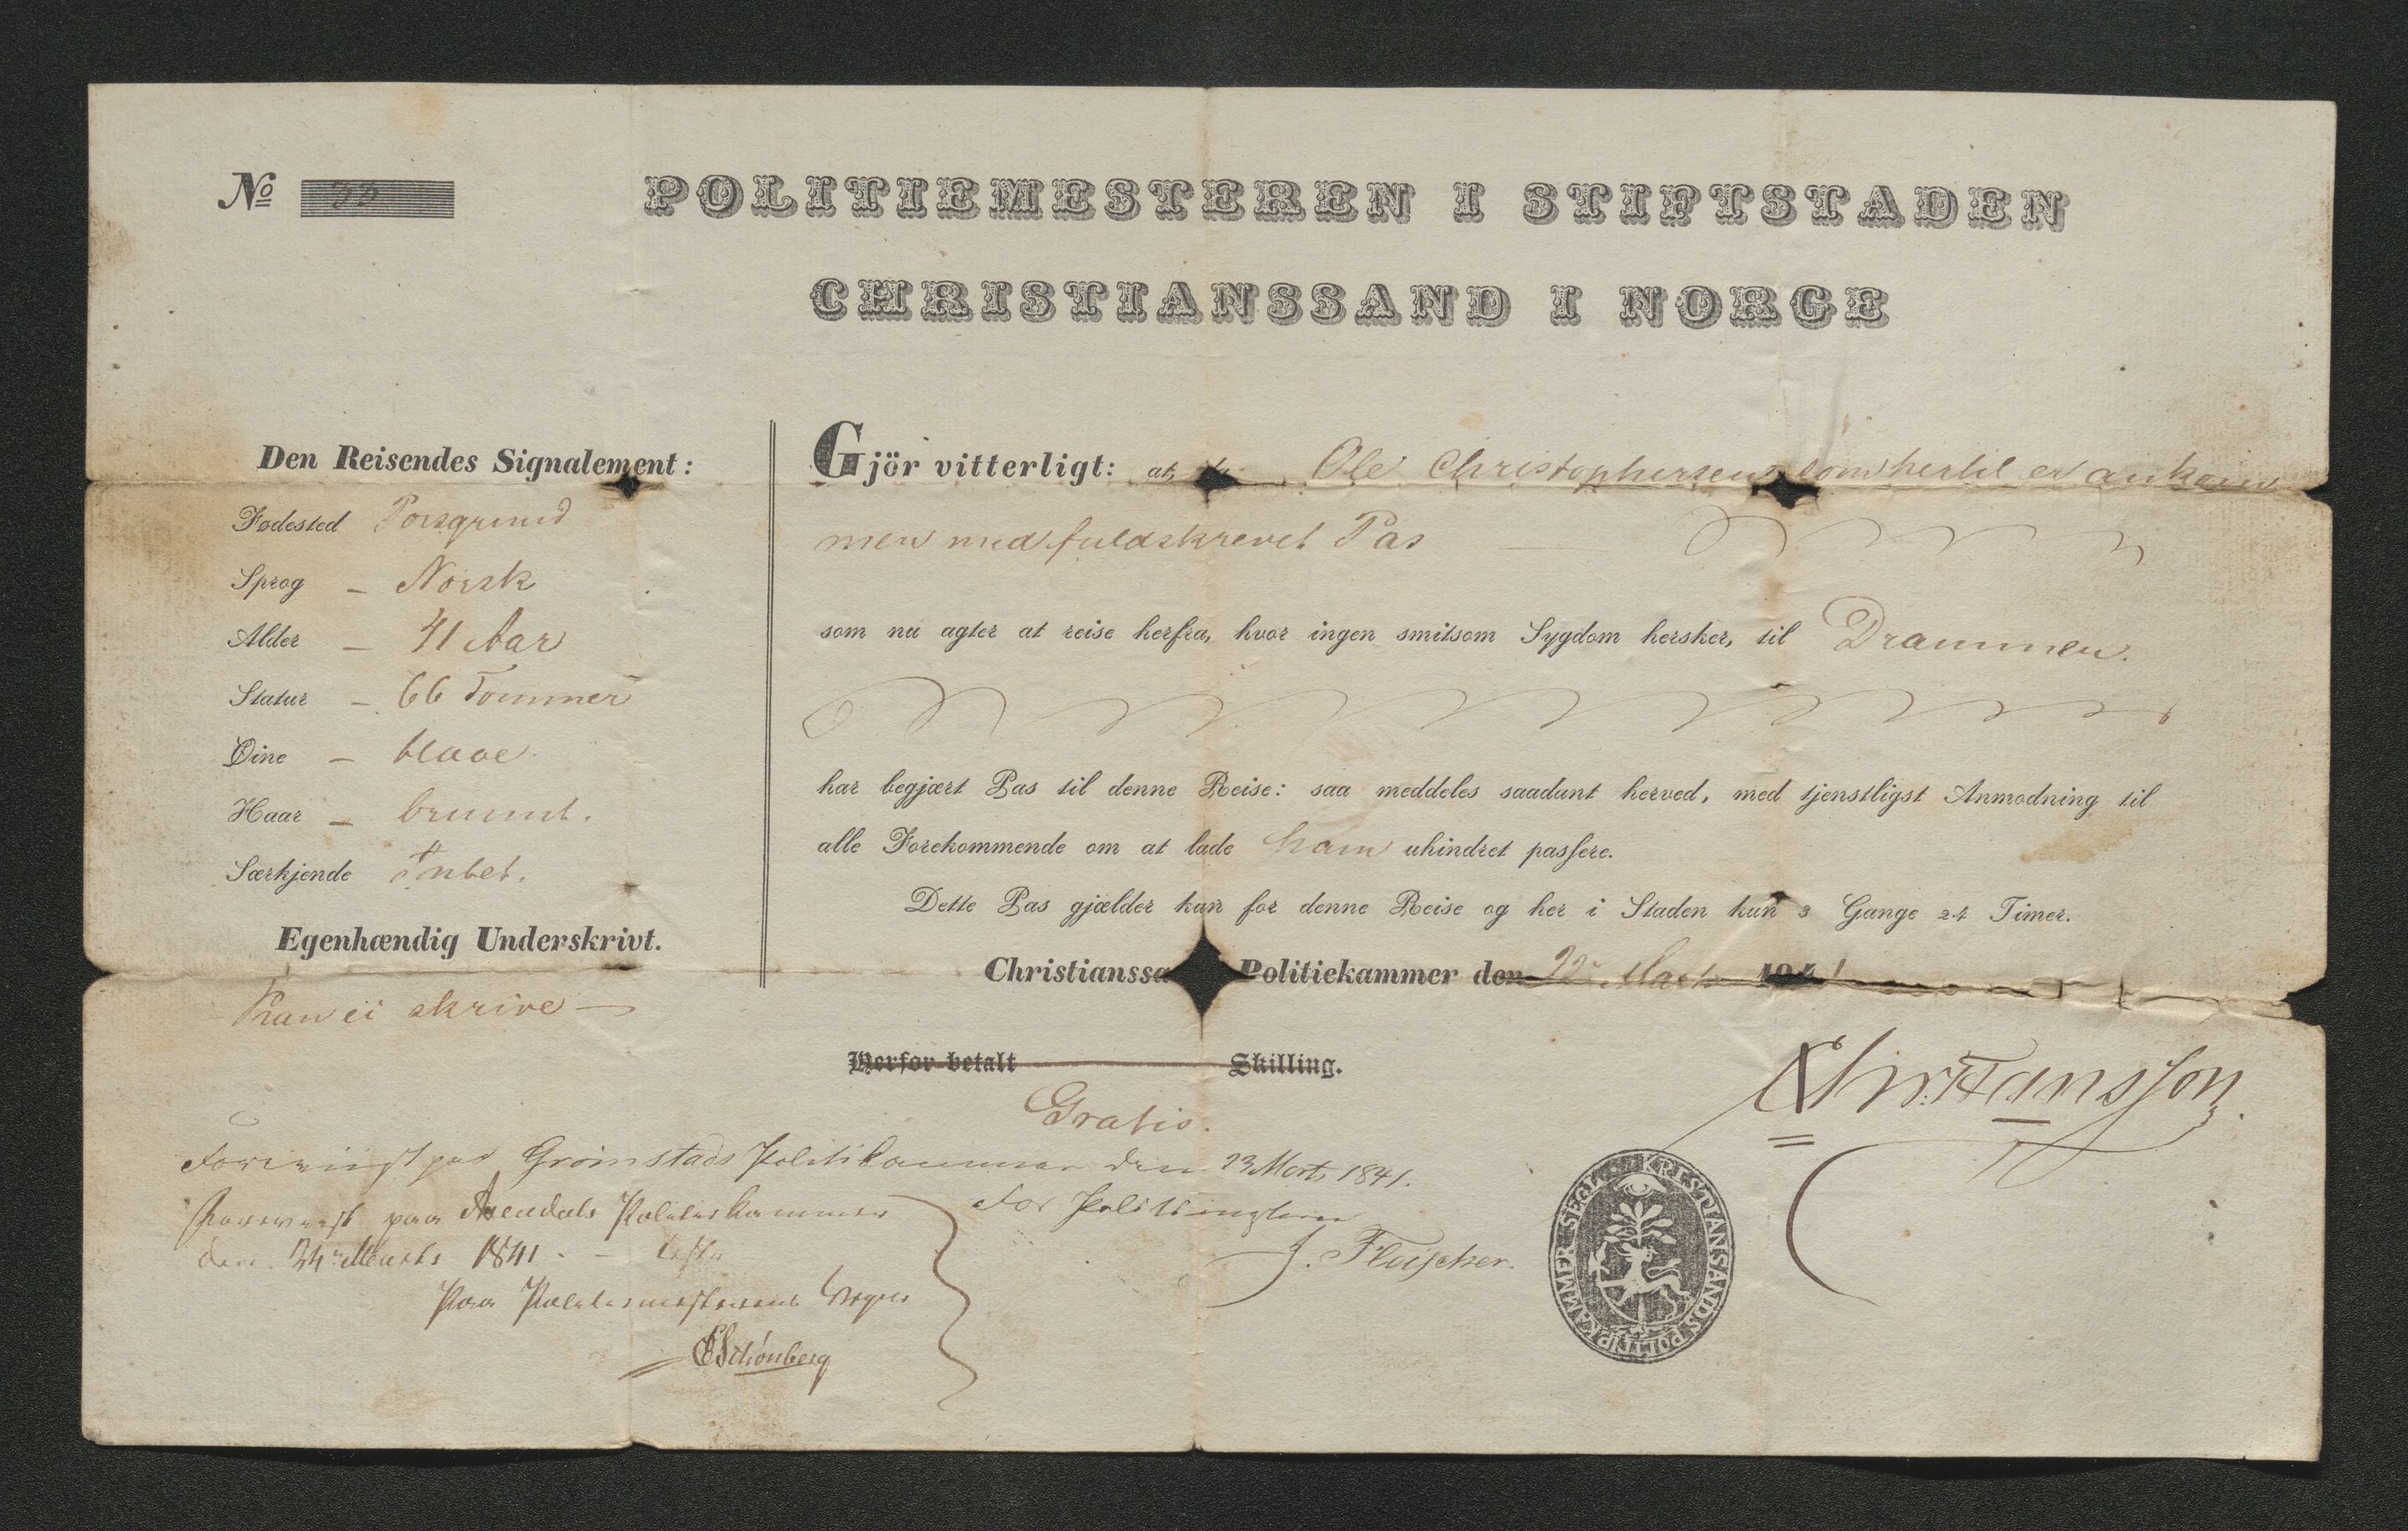 No 33
POLITIEMESTEREN I STIFTSTADEN
CHRISTIANSSAND I NORGE
Den Reisendes Signalement:
Fødested Porsgrund
Sprog – Norsk
Alder – 41 Aar
Statur – 66 Tommer
Øine – blaae
Haar – bruunt.
Særkjende Intet.
Egenhændig Underskrivt.
Kan ei skrive –
Gjör vitterligt: at, Ole Christophersen som hertil er ankom
men med fuldskrevet Pas
som nu agter at reise herfra, hvor ingen smitsom Sygdom hersker, til Drammen.
har begjært Pas til denne Reise: saa meddeles saadant herved, med tjenstligst Anmodning til
alle Forekommende om at lade ham uhindret passere.
Dette Pas gjælder kun for denne Reise og her i Staden kun 3 Gange 24 Timer.
Christianssa Politiekammer den 22 Marts 1841
Herfor betalt Skilling.
Gratis.
Christiansson
Foreviist paa Grimstads Politikammer den 23 Marts 1841.
For Politimesteren
J. Fleischer.
Foreviist paa Arendals Politiekammer
den 24 Marts 1841. –
Paa Politiemesterens Vegne
Schönberg
KRISTIANSANDS POLITIKAMMER SEGL